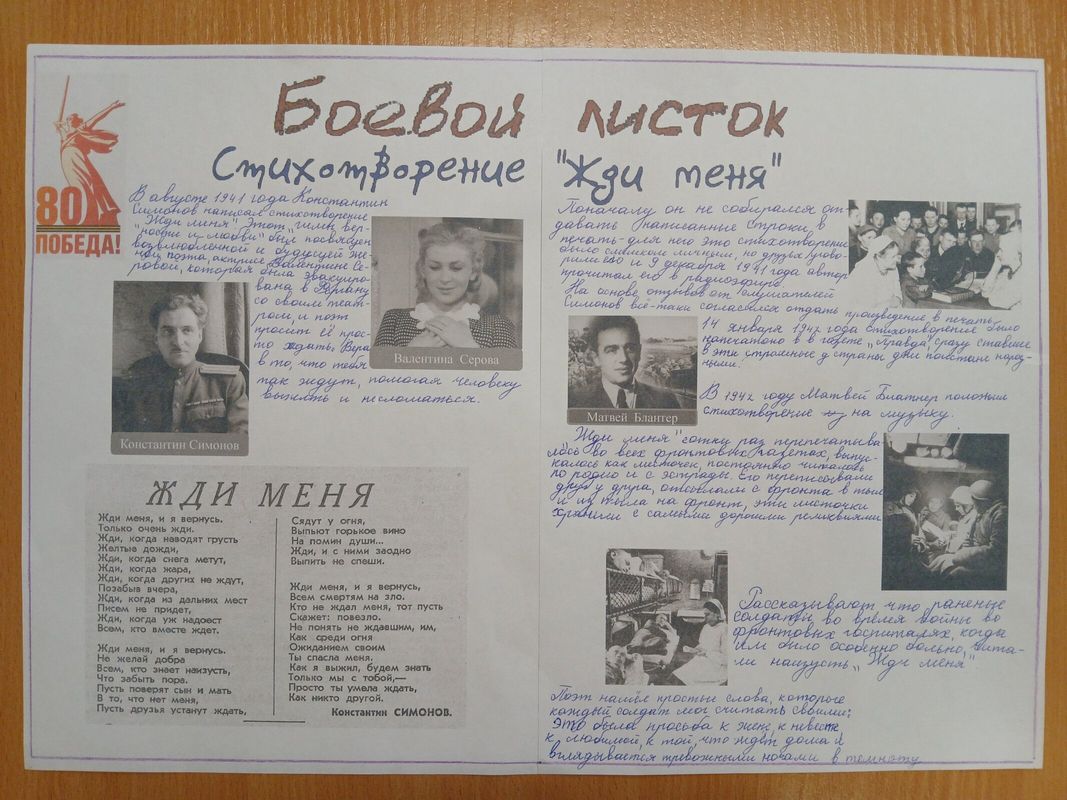 Боевой листок
Стихотворение "Жди меня"
80
ПОБЕДА!
В августе 1941 года Константин
Симонов написал стихотворение
"Жди меня". Этот "гимн вер-
ности и любви" был посвящен
возлюбленной и будущей же-
ной поэта, актрисе Валентине Се-
ровой, которая была эвакуиро-
вана в
со своим теат-
ром и поэт
просит её прос-
то ждать. Вера
в то, что тебя
так ждут, помогая человеку
выжить и несломаться.
Валентина Серова
Константин Симонов
ЖДИ МЕНЯ
Жди меня, и я вернусь.
Только очень жди.
Жди, когда наводят грусть
Желтые дожди,
Жди, когда снега метут,
Жди, когда жара,
Жди, когда других не ждут,
Позабыв вчера,
Жди, когда из дальних мест
Писем не придет,
Жди, когда уж надоест
Всем, кто вместе ждет.
Жди меня, и я вернусь.
Не желай добра
Всем, кто знает наизусть,
Что забыть пора.
Пусть поверят сын и мать
В то, что нет меня,
Пусть друзья устанут ждать,
Сядут у огня,
Выпьют горькое вино
На помин души...
Жди, и с ними заодно
Выпить не спеши.
Жди меня, и я вернусь,
Всем смертям на зло.
Кто не ждал меня, тот пусть
Скажет: повезло.
Не понять не ждавшим, им,
Как среди огня
Ожиданием своим
Ты спасла меня.
Как я выжил, будем знать
Только мы с тобой,—
Просто ты умела ждать,
Как никто другой.
Константин СИМОНОВ.
Поначалу он не собирался от
давать написанные строки в
печать-для него это стихотворение
было слишком личным, но друзья угово-
рили его и 9 декабря 1941 года автор
прочитал его в радиоэфире.
На основе отзывов от слушателей
Симонов всё-таки согласился отдать произведение в печать.
14 января 1942 года стихотворение было
напечатано в в газете "Правда", сразу ставшее
в эти строменые у страны дни поистами народ-
ными.
Матвей Блантер
В 1942 году Матвей Блатнер положим
стихотворение на музыку.
"Жди меня" сотни раз перепечатыва
лось во всех фронтовых газетах, выпус-
калось как листочек, постоянно читалось
по радио и с эстрады. Его переписывали
друг у друга, отсылали с фронта в тыл
и из тыла на фронт, эти листочки
хранили с самыми дорогими реликвиями
Рассказывают что раненые
солдаты, во время войны во
фронтовых госпиталях, когда
им было особенно больно, чита-
ли наизусть "Жди меня"
Поэт нашёл простые слова, которые
каждый солдат мог считать своими;
Это была просьба к жене, к невесте
к любимой, к той, что ждет дома и
вглядывается тревожными ночами в темноту